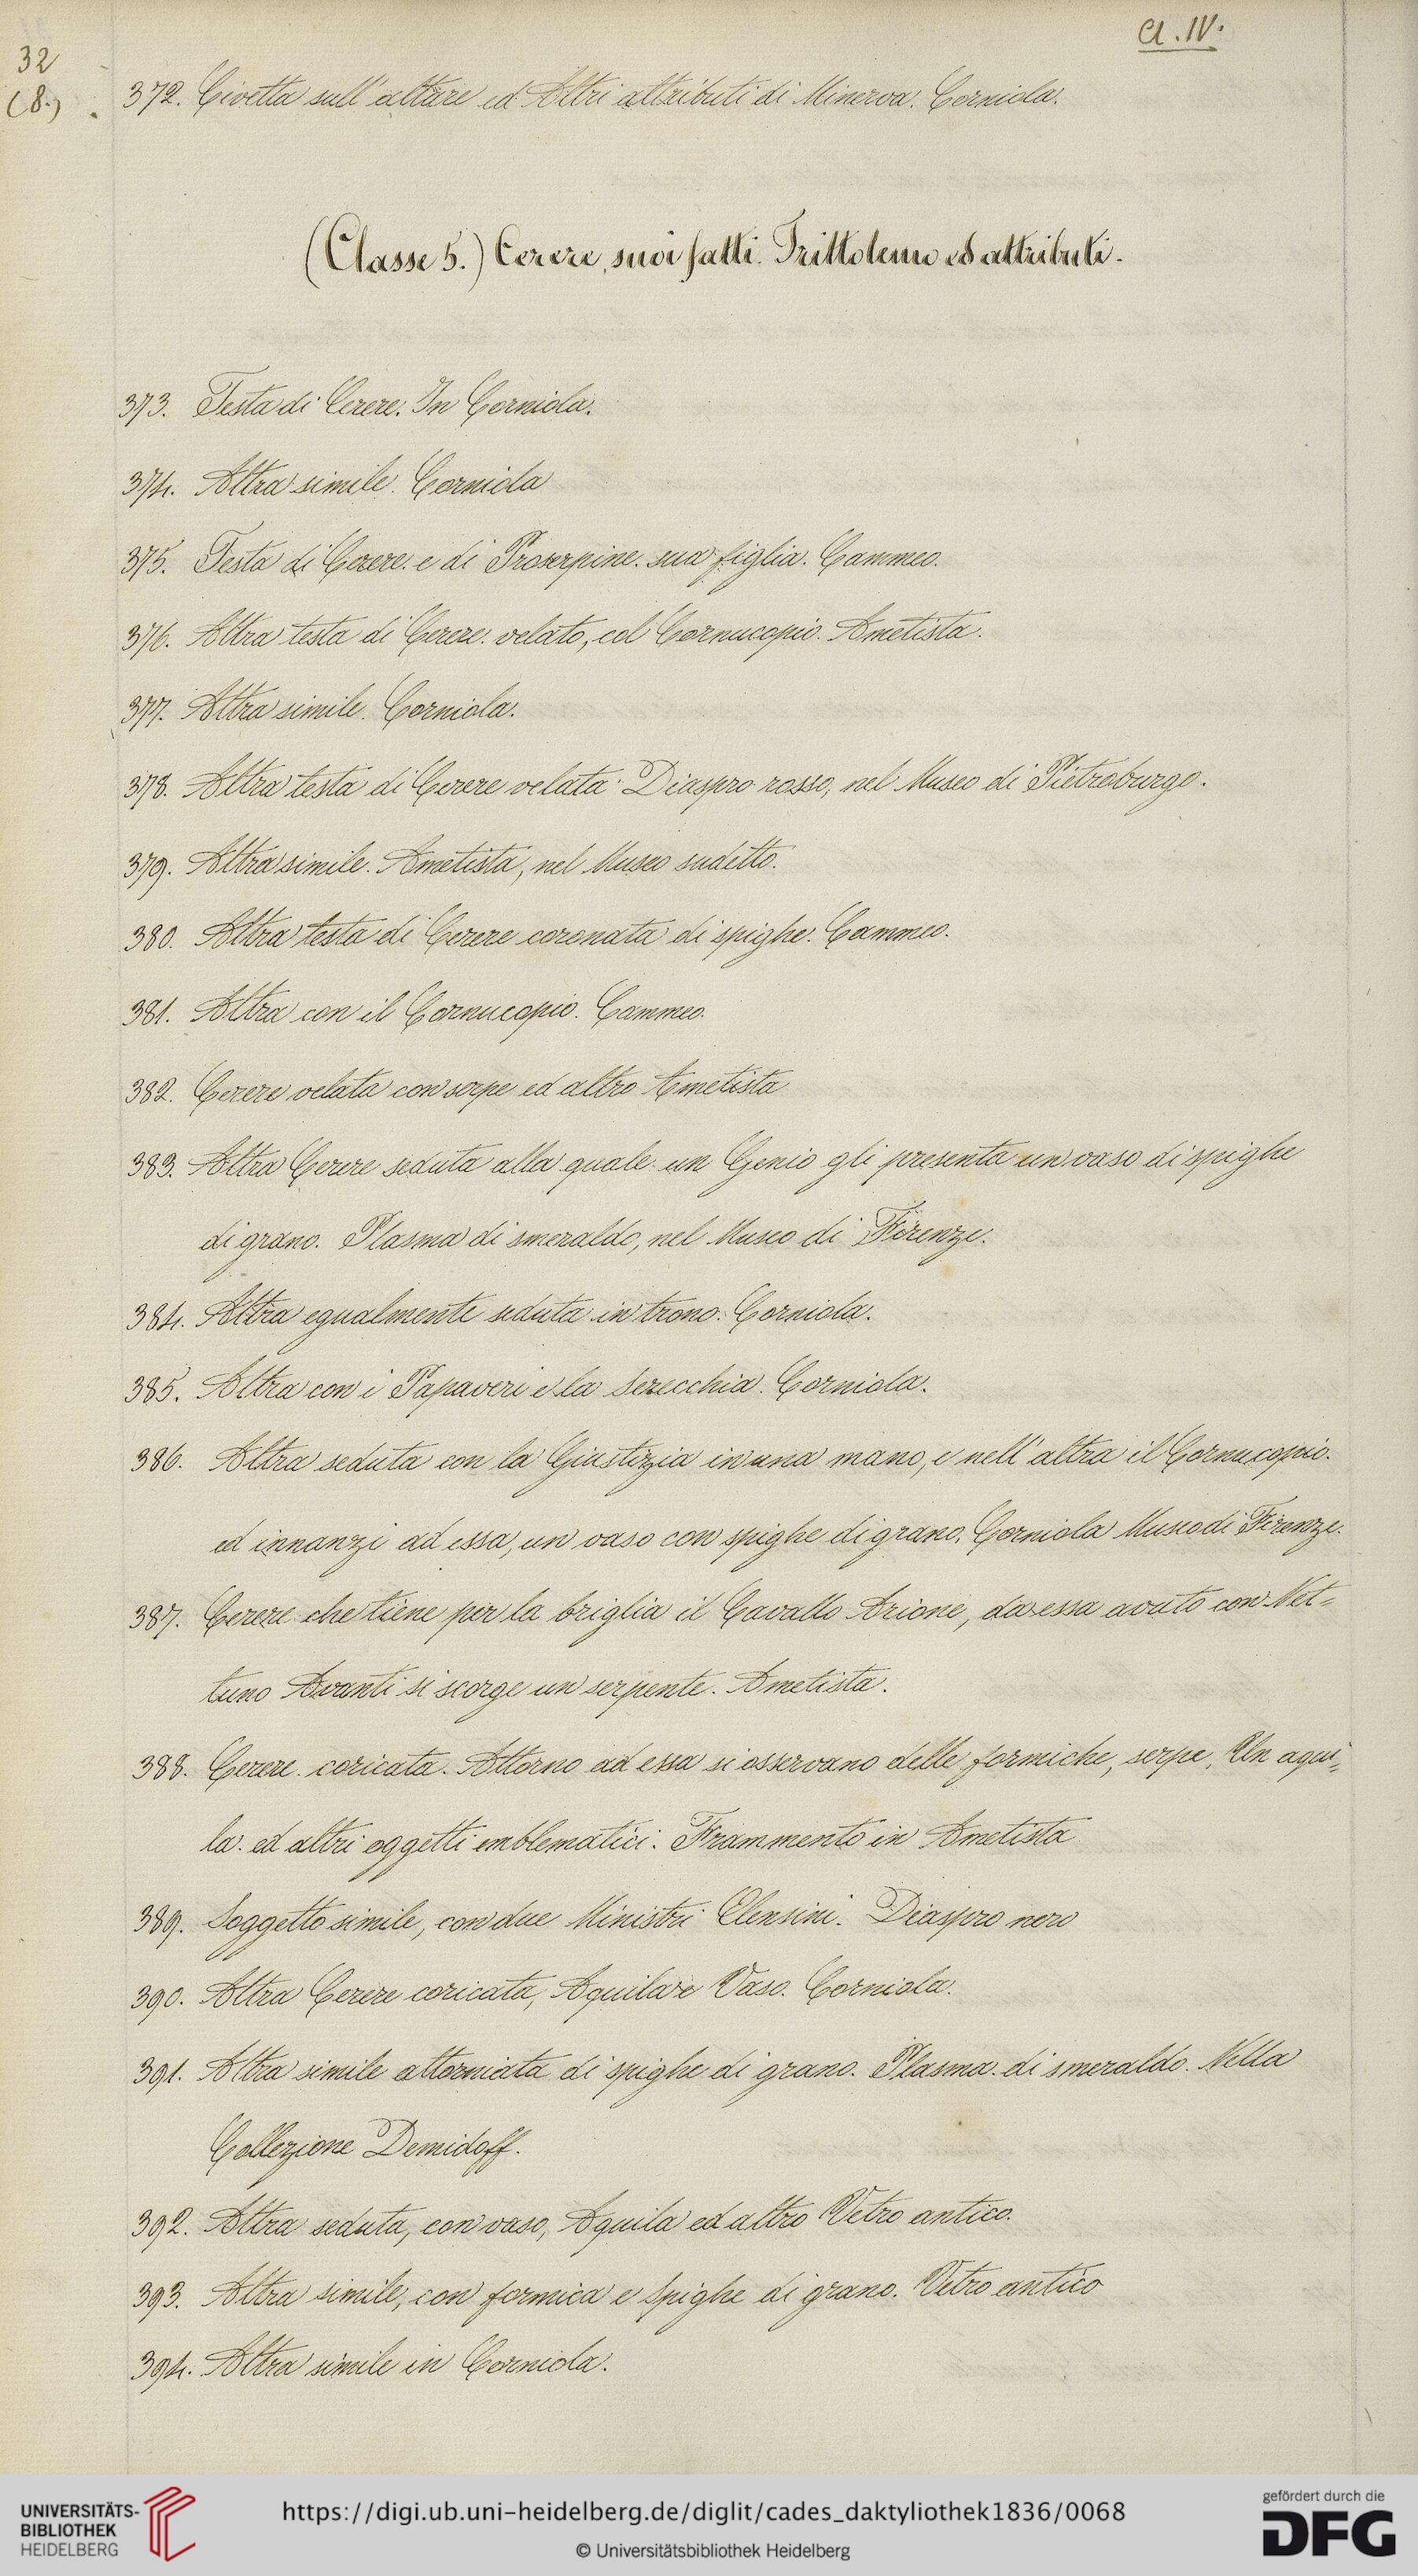 Cl. IV.
32
(8.)
372. Civetta sull'altare ed Altri attributi di Minerva. Corniola.
(Classe 5.) Cerere, suoi fatti. Trittolemo ed attributi.
373. Testa di Cerere. In Corniola.
374. Altra simile. Corniola
375. Testa di Cerere. e di Proserpine. sua figlia. Cammeo.
376. Altra testa di Cerere. velato, col Cornucopio. Ametista.
377. Altra simile. Corniola.
378. Altra testa di Cerere velata. Diaspro rosso, nel Museo di Pietroburgo.
379. Altra simile. Ametista, nel Museo sudetto.
380. Altra testa di Cerere coronata di spighe. Cammeo.
381. Altra con il Cornucopio. Cammeo.
382. Cerere velata con serpe ed altro Ametista
383. Altra Cerere seduta alla quale un Genio gli presenta un vaso di spighe
di grano. Plasma di smeraldo, nel Museo di Firenze.
384. Altra egualmente seduta in trono. Corniola.
385. Altra con i Papaveri e la Serecchia. Corniola.
386. Altra seduta con la Giustizia in una mano, e nell'altra il Cornucopio.
ed innanzi ad essa, un vaso con spighe di grano. Corniola Museo di Firenze.
387. Cerere che tiene per la briglia il Cavallo Arione, da essa avuto con Net=
tuno Avanti si scorge un serpente. Ametista.
388. Cerere coricata. Attorno ad essa si osservano delle formiche, serpe, Un aqui=
la. ed altri oggetti emblematici. Frammento in Ametista
389. Soggetto simile, con due Ministri Elensini. Diaspro nero
390. Altra Cerere coricata, Aquila e Vaso. Corniola.
391. Altra simile attorniata di spighe di grano. Plasma. di smeraldo. Nella
Collezione Demidoff.
392. Altra seduta, con vaso, Aquila ed altro Vetro antico.
393. Altra simile, con formica e Spighe di grano. Vetro antico
394. Altra simile in Corniola.
UNIVERSITÄTS-
BIBLIOTHEK
HEIDELBERG
https://digi.ub.uni-heidelberg.de/diglit/cades_daktyliothek1836/0068
© Universitätsbibliothek Heidelberg
gefördert durch die
DFG